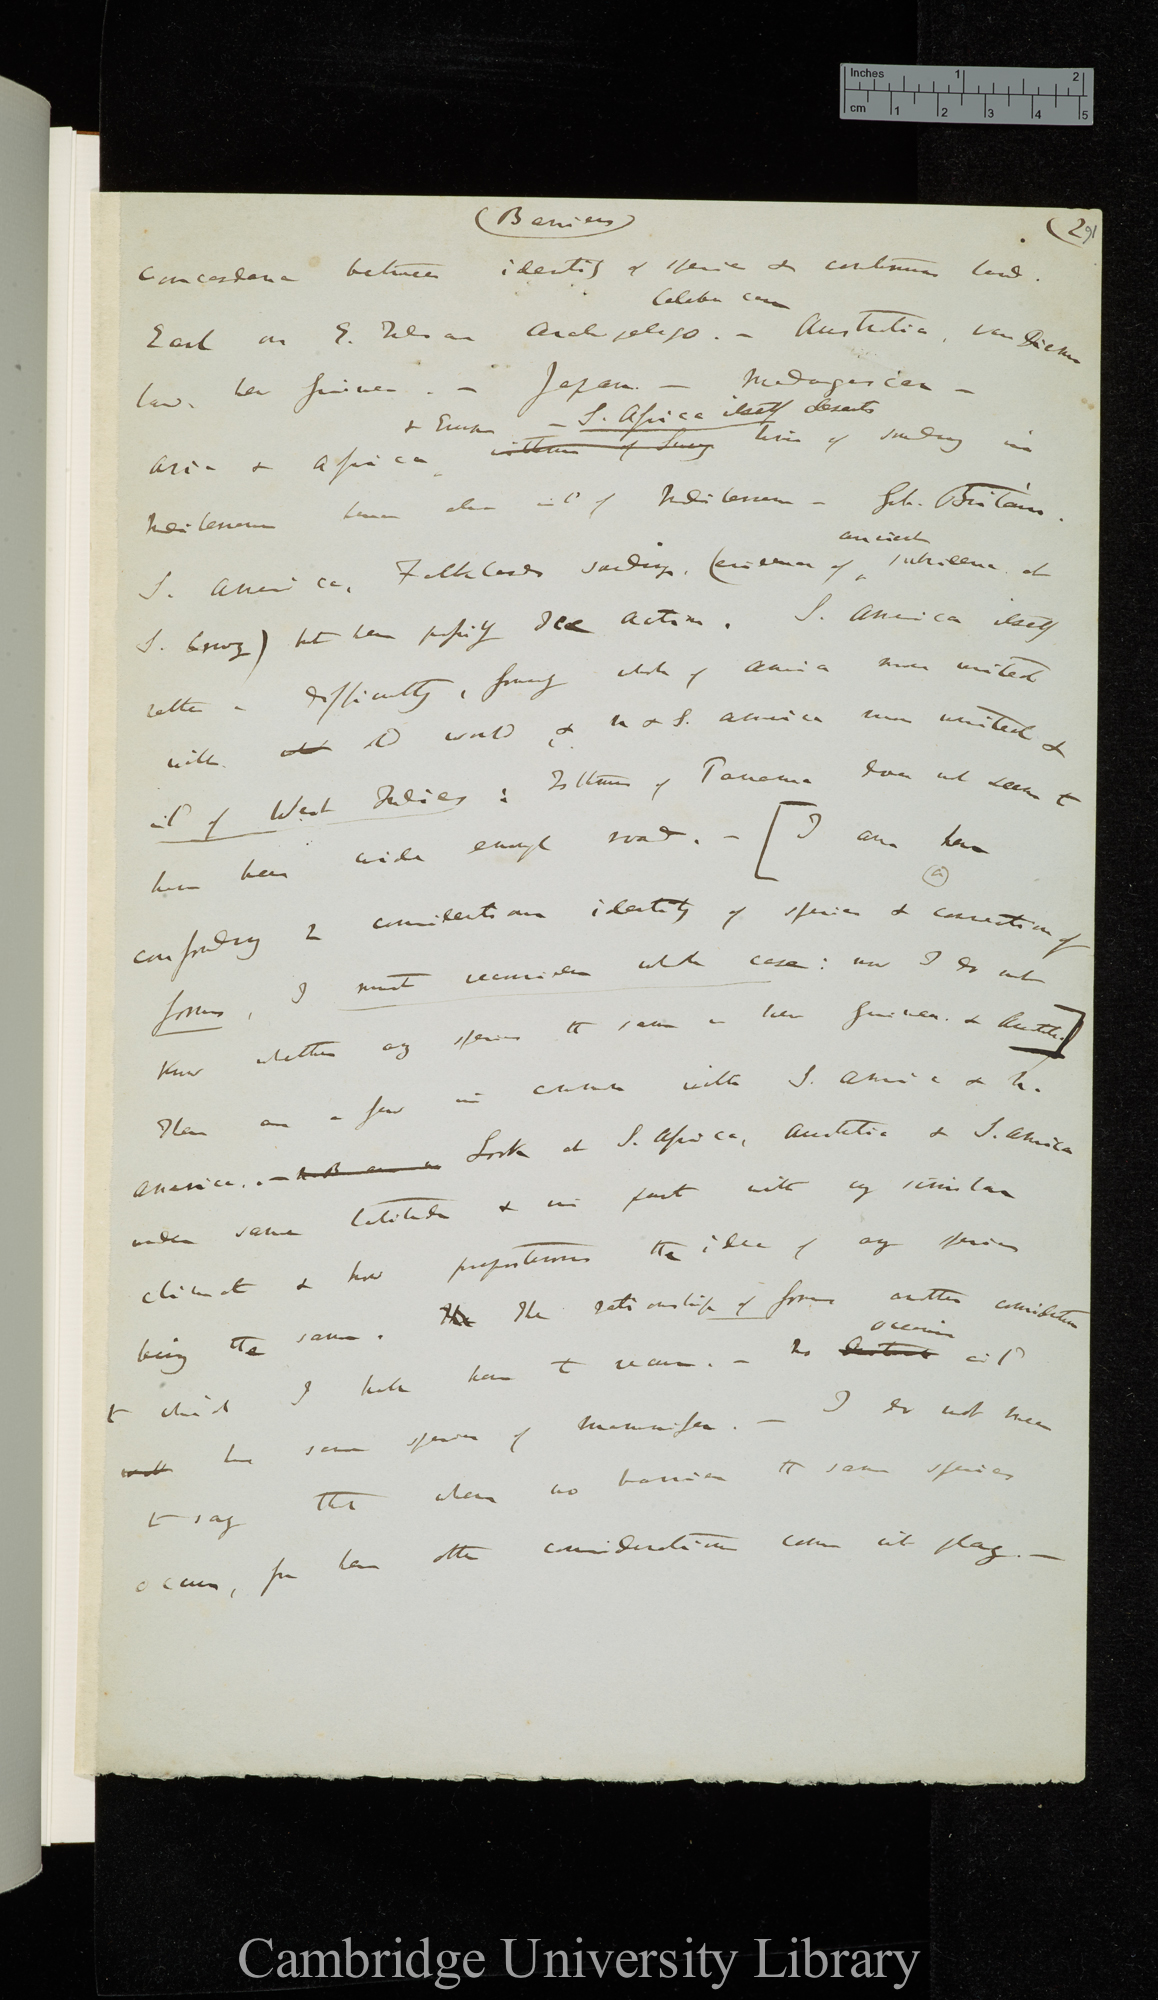 Inches 1 2
cm 1 2 3 4 5
(Barriers) (2
91
concordance between identity of species & continuous land.
Celebes case
Earl on E. Indian Archipelago. — Australia, Van Diemen
land. New Guinea. — Japan. — Madagascar —
& Europe — S. Africa itself deserts
Asia & Africa, isthmus of Suez line of soundings in
Mediterranean islands of Mediterranean — Grt. Britain.
ancient
S. America, Falklands soundings, (evidence of subsidence at
S. Cruz) but here possibly Ice action. S. America itself
rather a difficulty, formerly whole of America more united
with old world & N & S. America more united &
isld of West Indies: Isthmus of Panama does not seem to
have been wide enough road. — [I am here
(a)
confounding 2 considerations identity of species & connection of
forms, I must reconsider whole case: now I do not
know whether any species the same in New Guinea & Austral.]
There are a few in common with S. America & N.
America. — N.B Look at S. Africa, Australia & S. America
under same latitude & in part with very similar
climate & how preposterous the idea of any species
being the same. The The relationship of forms another consideration
oceanic
to which I shall have to recur. — No isld
with has same species of mammifer. — I do not mean
to say that when no barrier the same species
occurs, for here other considerations come into play. —
Cambridge University Library